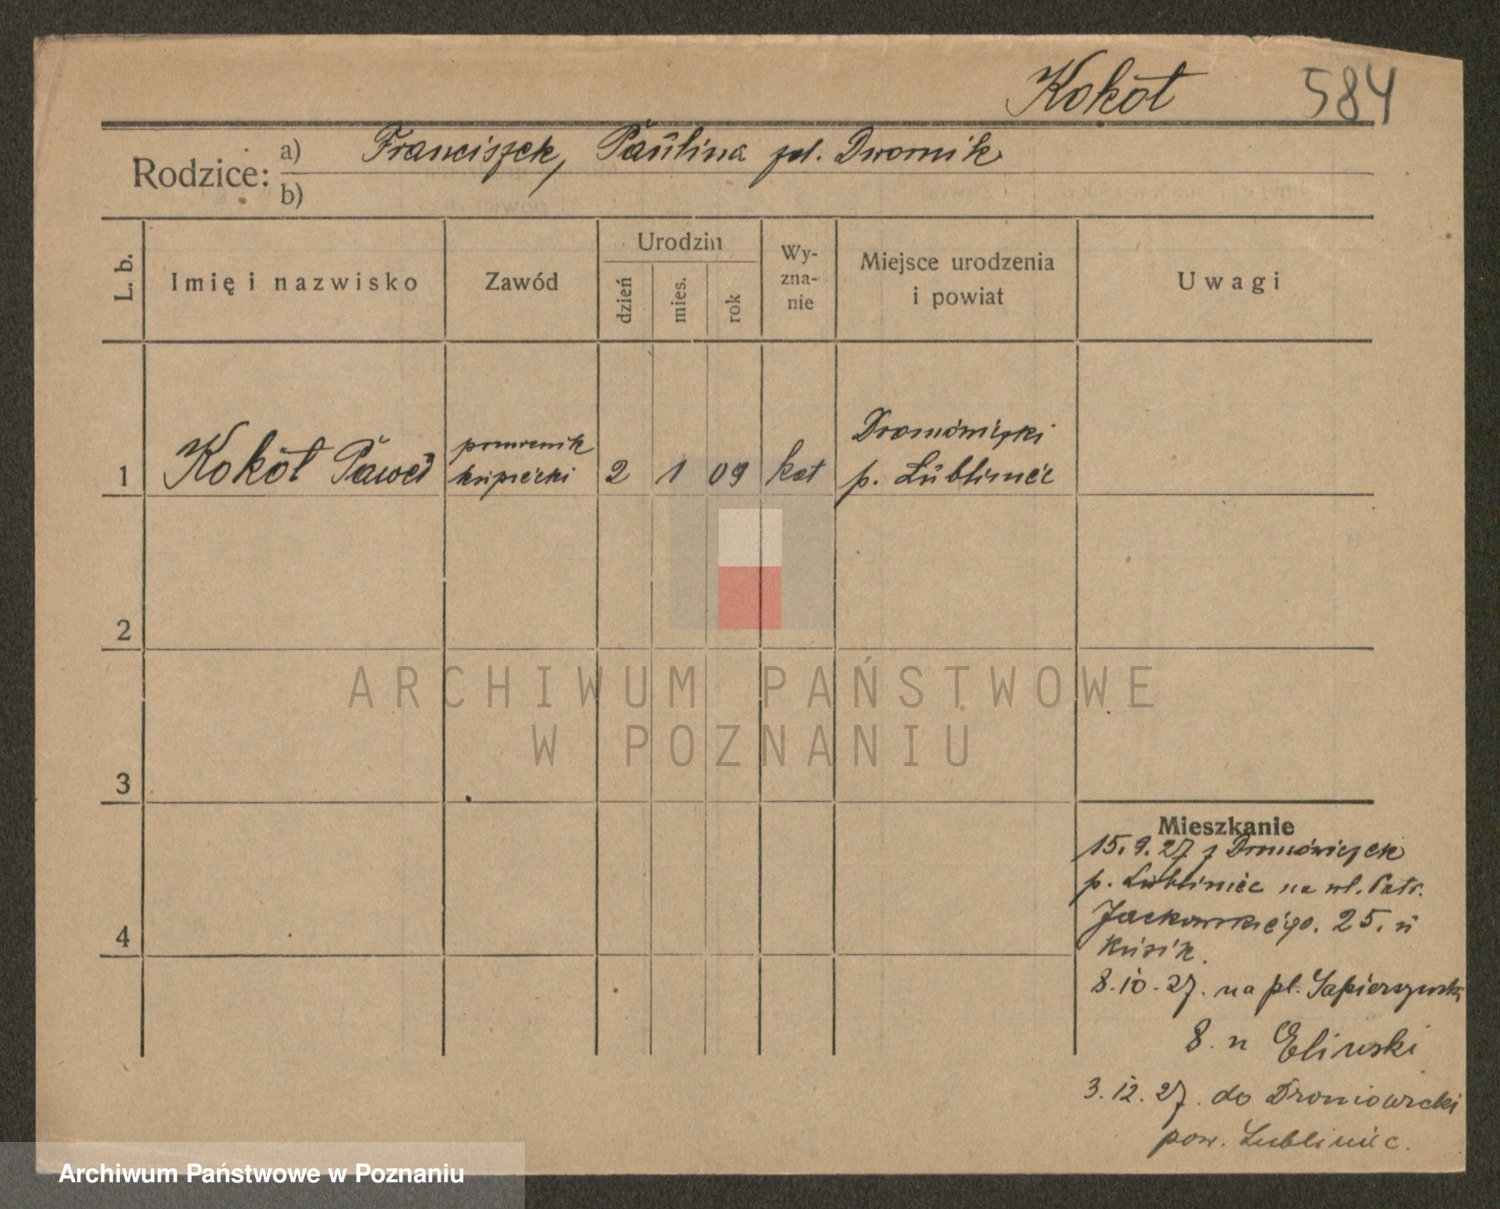 Kokót 584
Rodzice: a) Franciszek, Paulina zd. Dwornik
b)
L. b.
Imię i nazwisko
Zawód
Urodzin
dzień
mies.
rok
Wy-
zna-
nie
Miejsce urodzenia
i powiat
Uwagi
1 Kokót Paweł
pomocnik
kupiecki
2 1 09 kat
Droniowiczki
p. Lubliniec
2
3
4
ARCHIWUM PAŃSTWOWE
W POZNANIU
Mieszkanie
15.9.27 z
p. Lubliniec na ul. Patr.
Jackowskiego. 25. u
8.10.27. na pl. Sapieżyński
8. u
3.12.27. do
pow. Lubliniec.
Archiwum Państwowe w Poznaniu